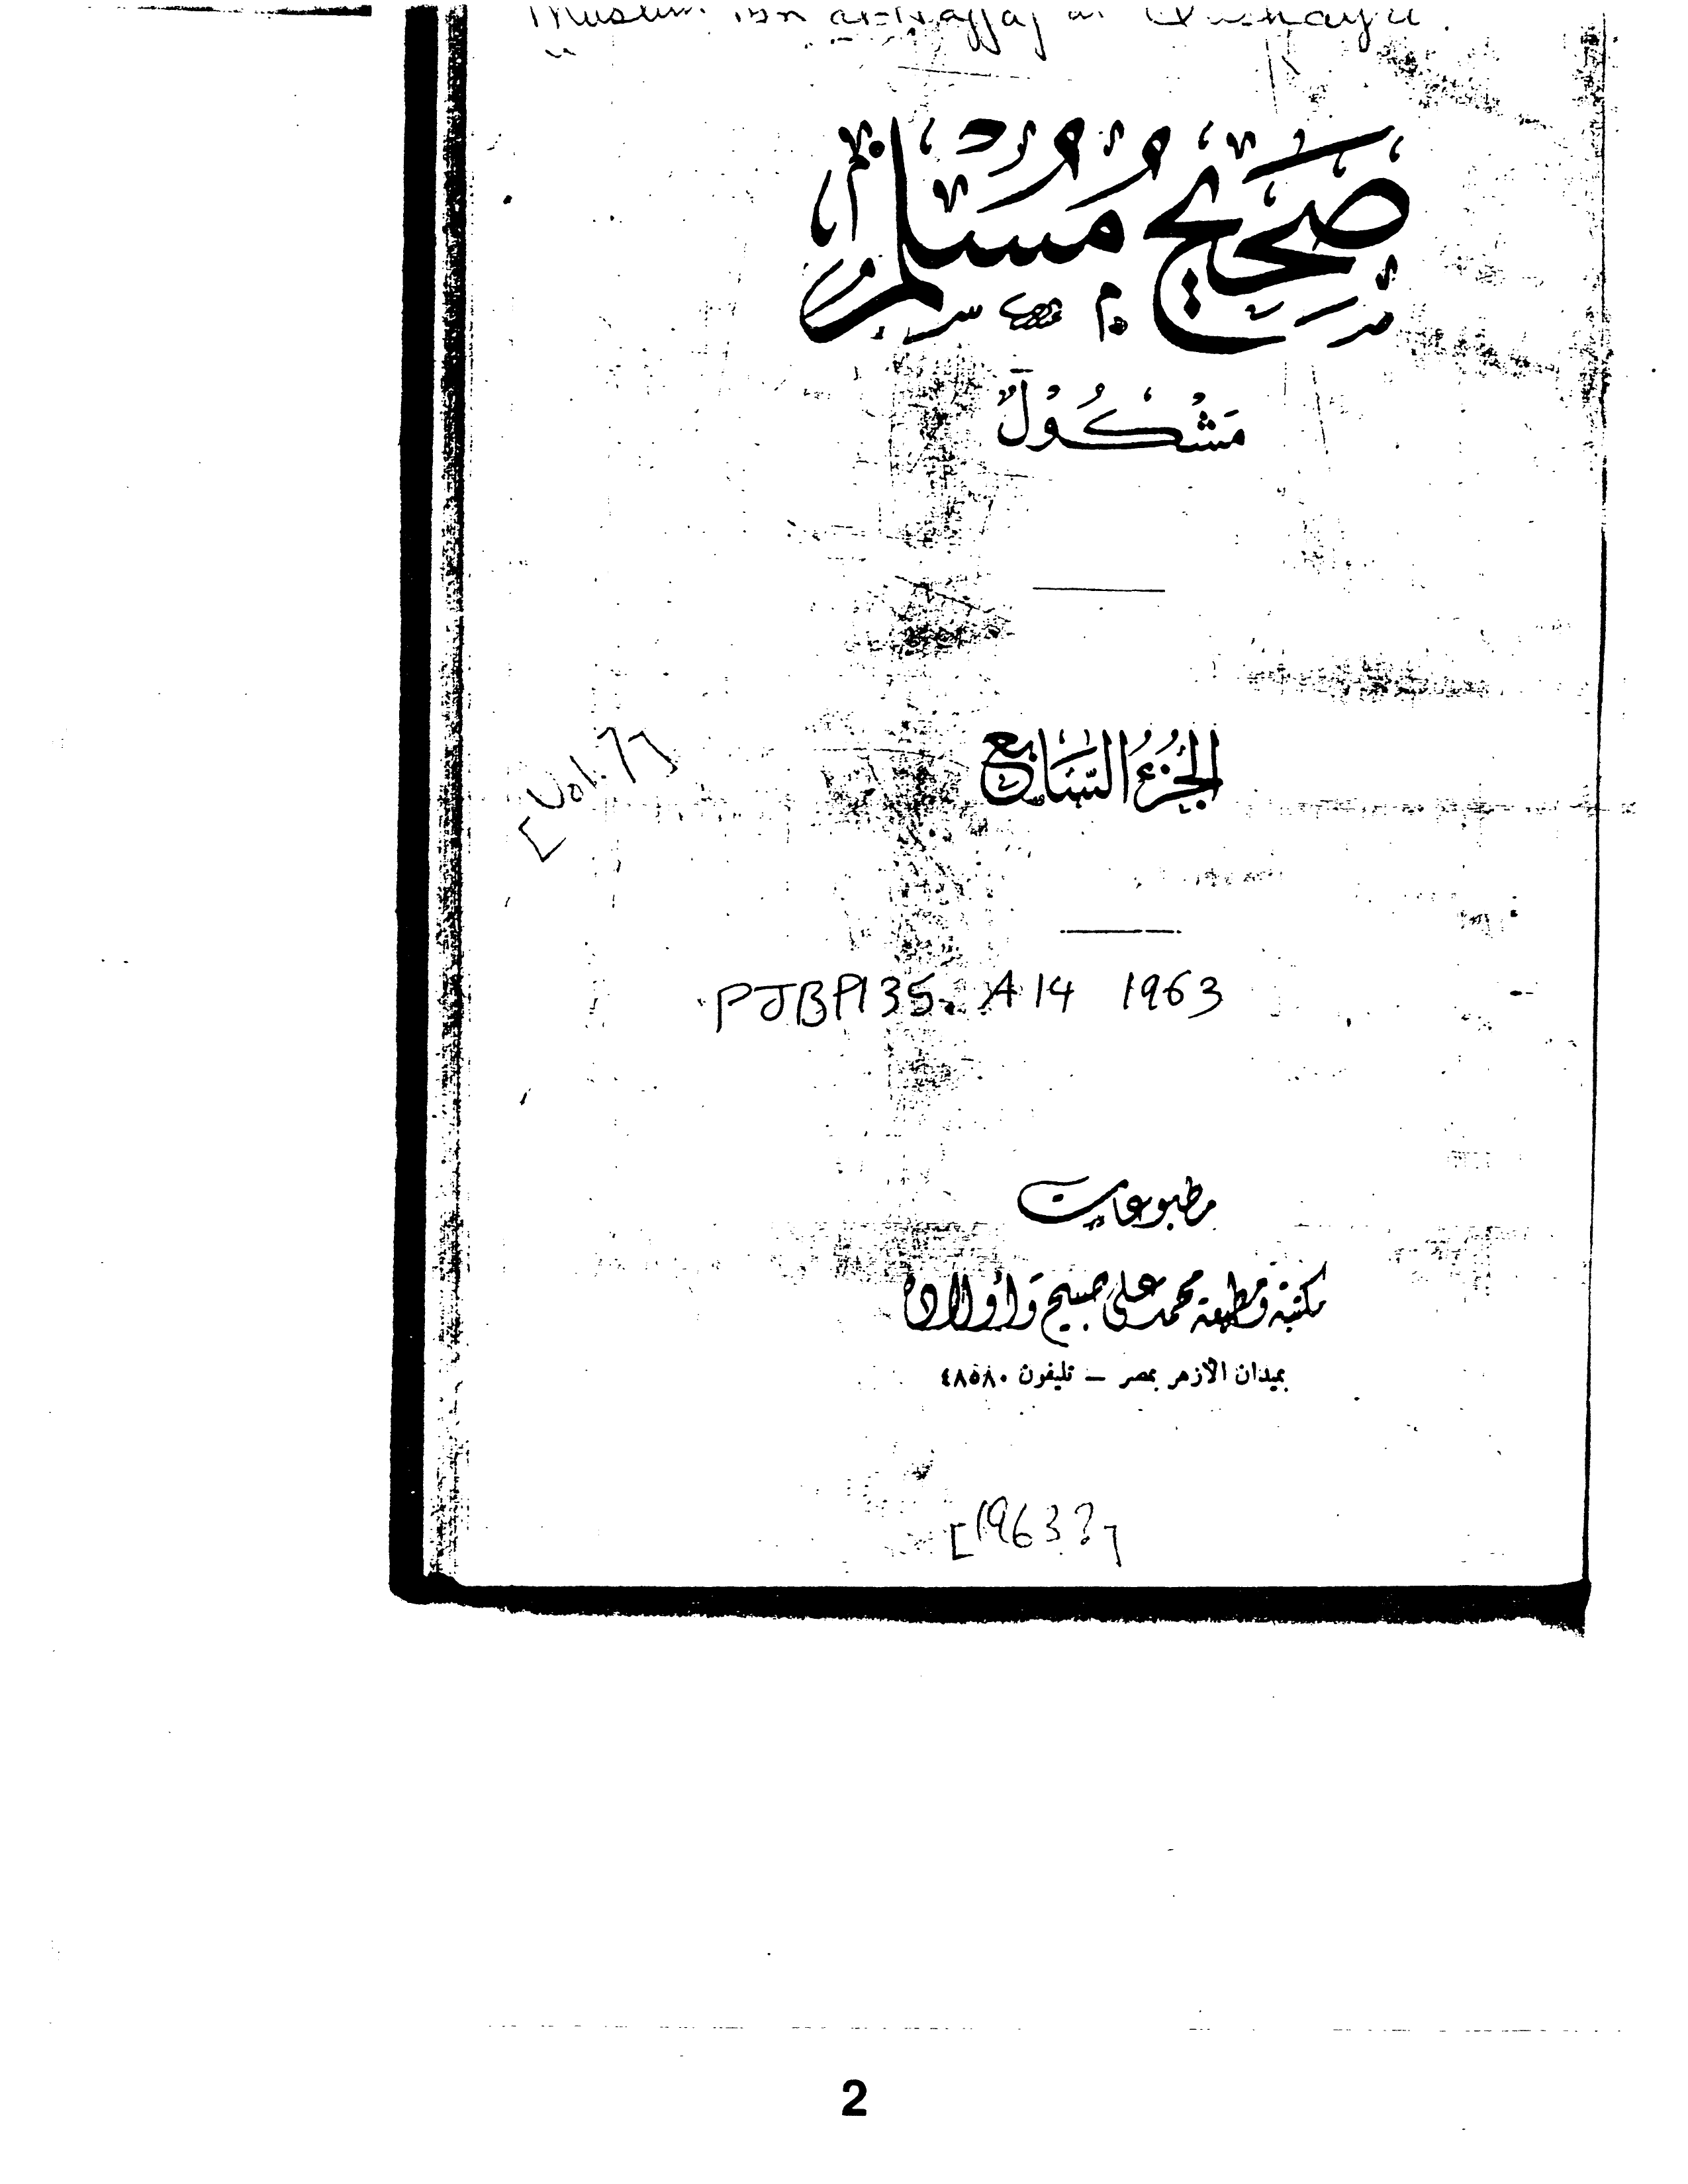 Muslim ibn al-Hajjaj al Qushayri.
صَحِيح مُسْلِم
مَشْكُوْلٌ
الجُزءُ السَّابِع
[Vol. 7]
PJBP135. A14 1963
مطبوعات
مكتبة ومطبعة محمد على صبيح وَأولاده
بميدان الأزهر بمصر — تليفون ٤٨٥٨٠
[1963?]
2